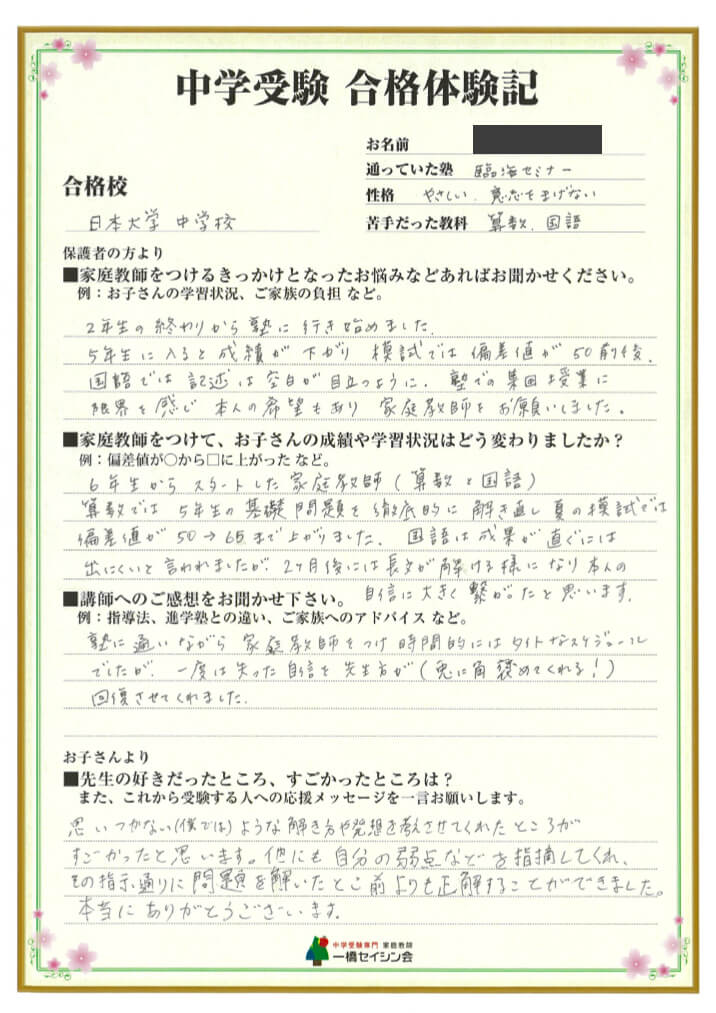 中学受験 合格体験記
お名前
通っていた塾 臨海セミナー
合格校
性格 やさしい、意志をまげない
日本大学 中学校
苦手だった教科 算数、国語
保護者の方より
■家庭教師をつけるきっかけとなったお悩みなどあればお聞かせください。
例：お子さんの学習状況、ご家族の負担 など。
2年生の終わりから塾に行き始めました。
5年生に入ると成績が下がり 模試では偏差値が50前後、
国語では記述は空白が目立つように、塾での集団授業に
限界を感じ 本人の希望もあり 家庭教師をお願いしました。
■家庭教師をつけて、お子さんの成績や学習状況はどう変わりましたか？
例：偏差値が○から□に上がった など。
6年生からスタートした家庭教師（算数と国語）
算数では5年生の基礎問題を徹底的に解き直し夏の模試では
偏差値が50→65まで上がりました。国語は成果が直ぐには
出にくいと言われましたが、2ヶ月後には長文が解ける様になり本人の
自信に大きく繋がったと思います。
■講師へのご感想をお聞かせ下さい。
例：指導法、進学塾との違い、ご家族へのアドバイス など。
塾に通いながら家庭教師をつけ時間的にはタイトなスケジュール
でしたが、一度は失った自信を先生方が（兎に角褒めてくれる！）
回復させてくれました。
お子さんより
■先生の好きだったところ、すごかったところは？
また、これから受験する人への応援メッセージを一言お願いします。
思いつかない(僕では)ような解き方や発想を考えさせてくれたところが
すごかったと思います。他にも自分の弱点などを指摘してくれ、
その指示通りに問題を解いたとこ前よりも正解することができました。
本当にありがとうございます。
中学受験専門 家庭教師
一橋セイシン会